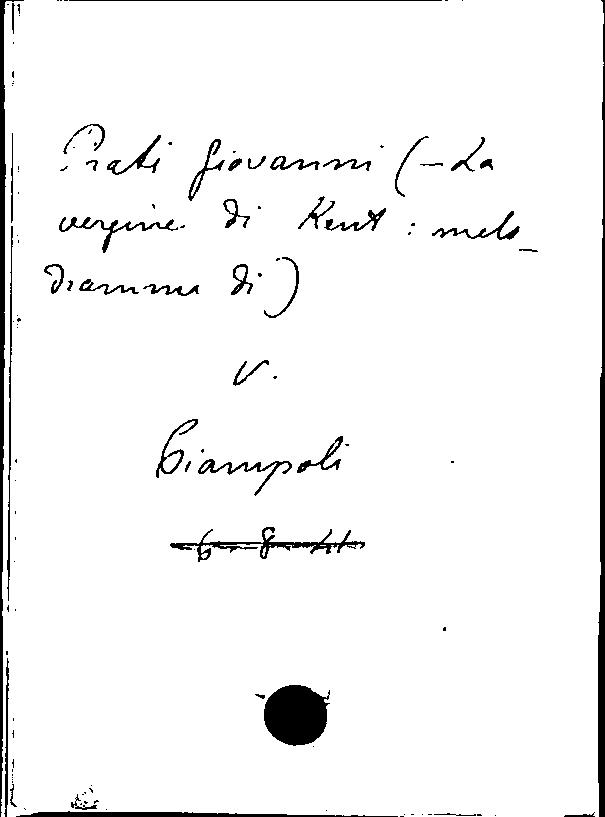 Prati Giovanni (- La
vergine di Kent : melo_
dramma di)
V.
Ciampoli
6 8 41